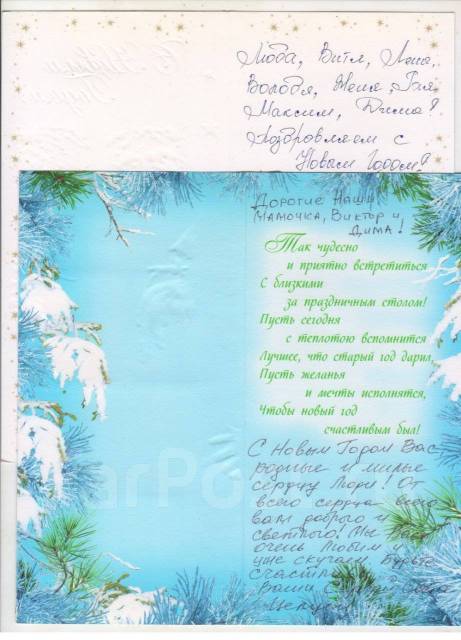 Люба, Витя, Лена,
Володя, Женя, Галя,
Максим, Дима!
Поздравляем с
Новым Годом!
Дорогие Наши
мамочка, Виктор и
Дима!
Так чудесно
и приятно встретиться
С близкими
за праздничным столом!
Пусть сегодня
с теплотою вспомнится
Лучшее, что старый год дарил,
Пусть желанья
и мечты исполнятся,
Чтобы новый год
счастливым был!
С Новым Годом Вас
родные и милые
сердцу люди! От
всего сердца всего
вам доброго и
светлого! Мы Вас
очень любим и
уже скучаем Будьте
Ваши